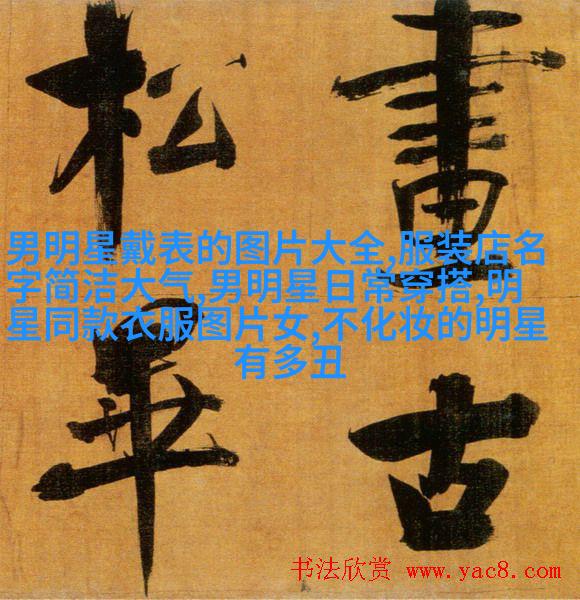 畫古
松畢
男明星戴表的图片大全,服装店名
字简洁大气,男明星日常穿搭,明
星同款衣服图片女,不化妆的明星
有多丑
书法欣赏 www.yac8.com